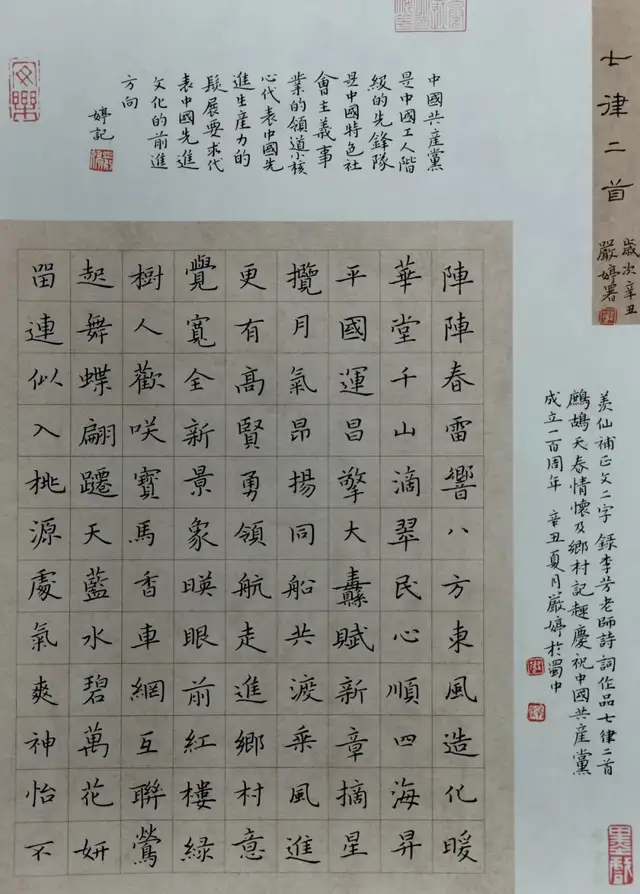 七律二首
歲次辛丑
嚴婷署
中國共産黨
是中國工人階
級的先鋒隊
是中國特色社
會主義事
業的領導核
心代表中國先
進生産力的
發展要求代
表中國先進
文化的前進
方向
婷記
陣陣春雷響八方東風造化暖
華堂千山滴翠民心順四海昇
平國運昌擎大纛賦新章摘星
攬月氣昂揚同船共渡乘風進
更有高賢勇領航走進鄉村意
覺寬全新景象暎眼前紅樓綠
樹人歡咲寳馬香車網互聯鶯
起舞蝶翩躚天藍水碧萬花妍
畱連似入桃源處氣爽神怡不
羨仙補正文二字 錄李芳老師詩詞作品七律二首
鷓鴣天春情懷及鄉村記趣慶祝中國共産黨
成立一百周年 辛丑夏月嚴婷於蜀中